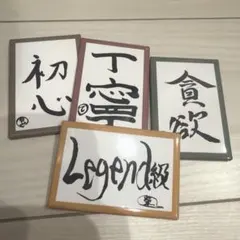 初心
丁寧
貪欲
Legend級